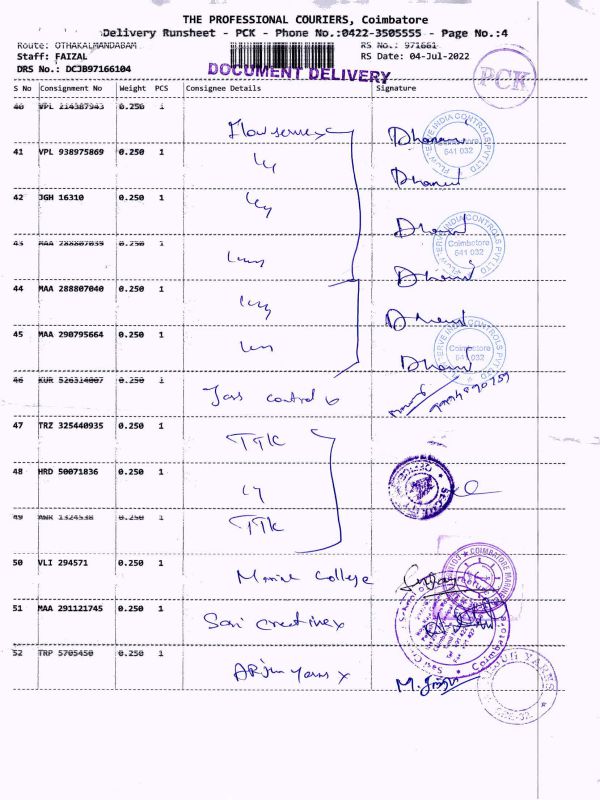 THE PROFESSIONAL COURIERS, Coimbatore
Delivery Runsheet - PCK - Phone No.:0422-3505555 - Page No.:4
Route: OTHAKALMANDABAM RS No.: 971661
Staff: FAIZAL RS Date: 04-Jul-2022
DRS No.: DCJB97166104
DOCUMENT DELIVERY
PCK
S No Consignment No Weight PCS Consignee Details Signature
40 VPL 214387943 0.250 1
Flowservex
41 VPL 938975869 0.250 1
42 JGH 16310 0.250 1
43 MAA 288807039 0.250 1
44 MAA 288807040 0.250 1
45 MAA 290795664 0.250 1
46 KUR 526314007 0.250 1
control
47 TRZ 325440935 0.250 1
TTK
48 HRD 50071836 0.250 1
49 1324538 0.250 1
TTK
50 VLI 294571 0.250 1
Marine College
51 MAA 291121745 0.250 1
Sai Creative
52 TRP 5705450 0.250 1
Arjun Yarns
INDIA CONTROLS PVT LTD
Coimbatore
641 032
SECURITY OFFICE
COIMBATORE MARINE
Coimbatore
YARNS